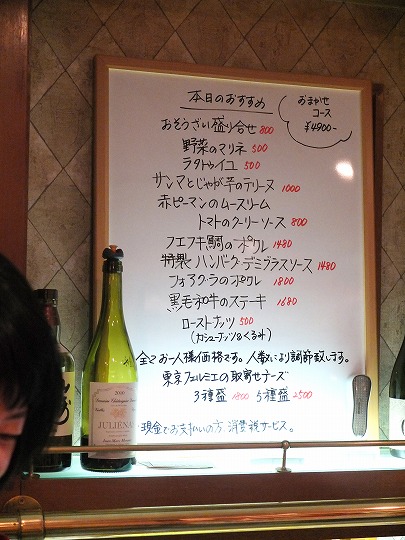 本日のおすすめ
おまかせ
コース
¥4900-
おそうざい盛り合せ 800
野菜のマリネ 500
ラタトゥイユ 500
サンマとじゃが芋のテリーヌ 1000
赤ピーマンのムースリーム
トマトのクーリーソース 800
フエフキ鯛のポワレ 1480
特製ハンバーグ・デミグラスソース 1480
フォアグラのポワレ 1800
黒毛和牛のステーキ 1680
ローストナッツ 500
(カシューナッツ&くるみ)
全てお一人様価格です。人数により調節致します。
東京フェルミエの取寄せチーズ
3種盛 1800 5種盛 2500
現金でお支払いの方、消費税サービス。
2010
JULIENA